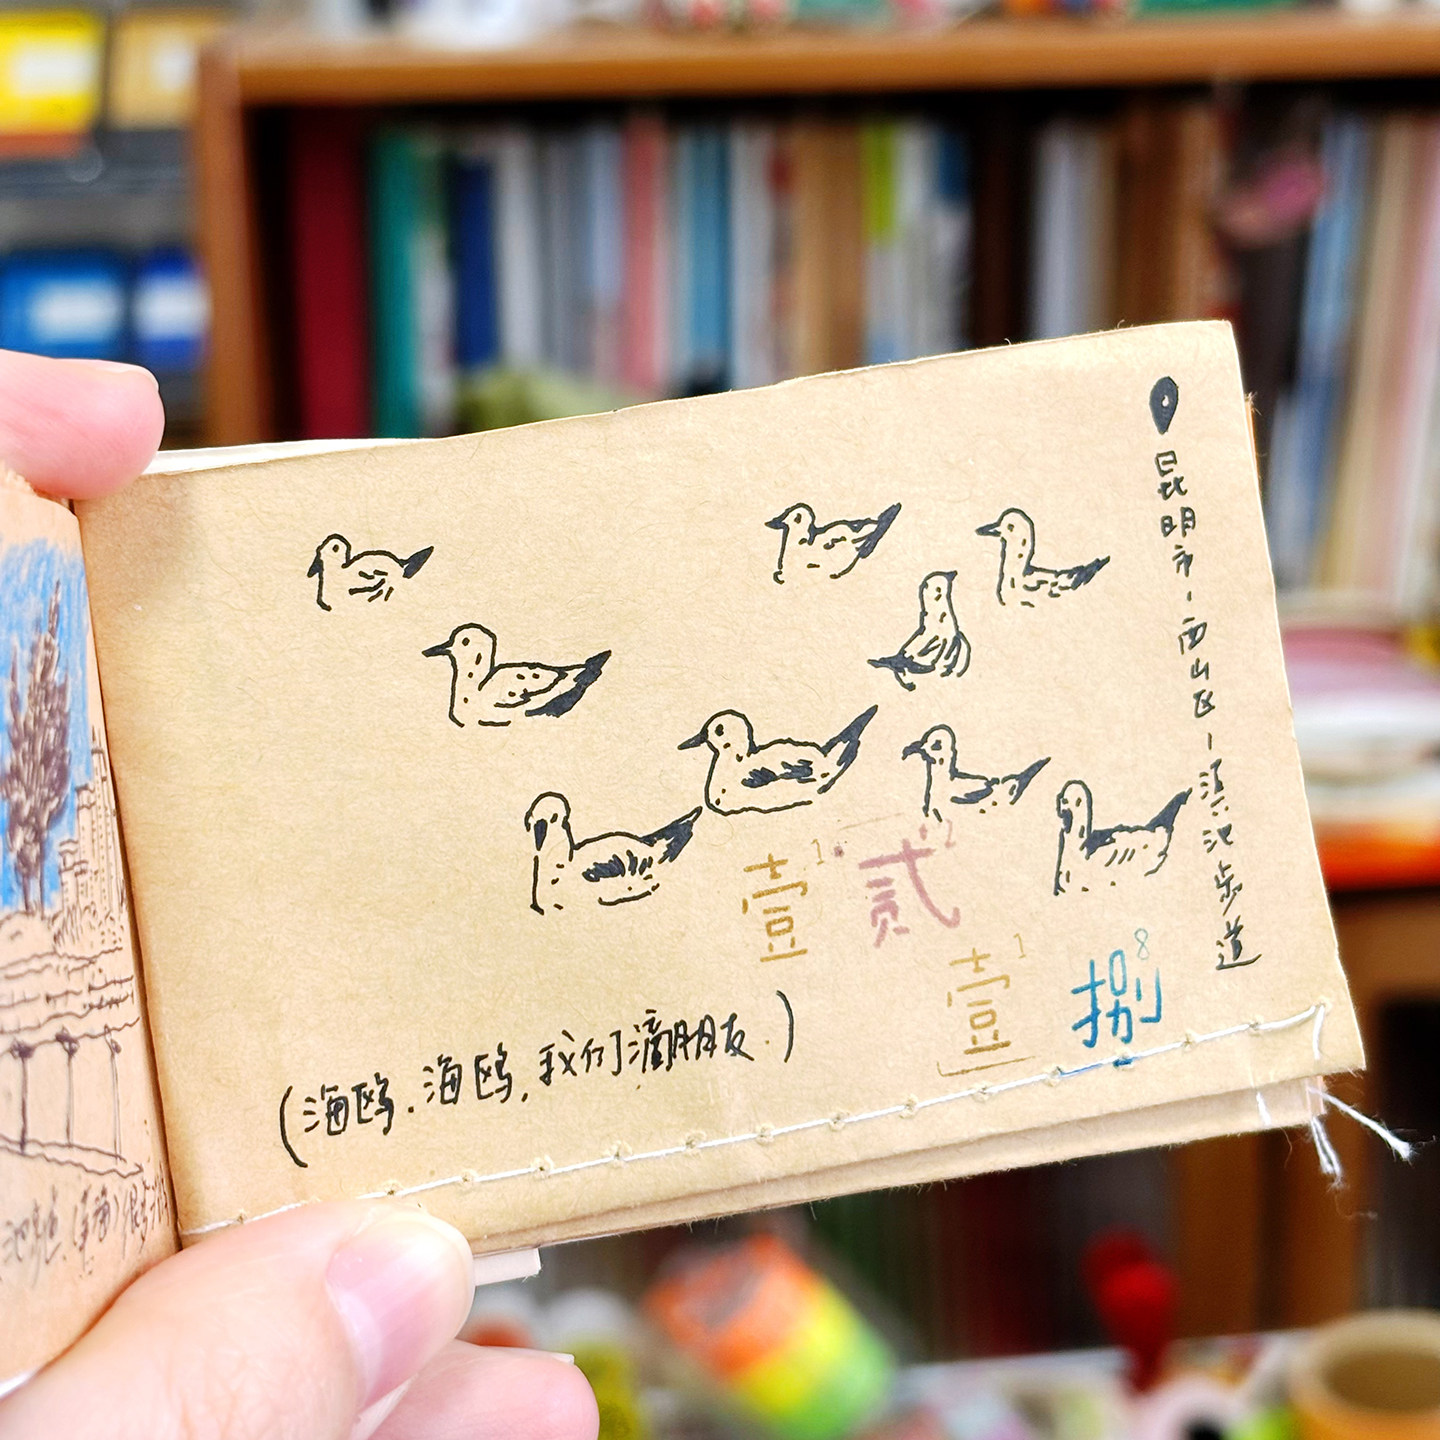 昆明市-西山区-滇池步道
壹1 贰2
壹1 捌8
(海鸥.海鸥,我们滴朋友.)